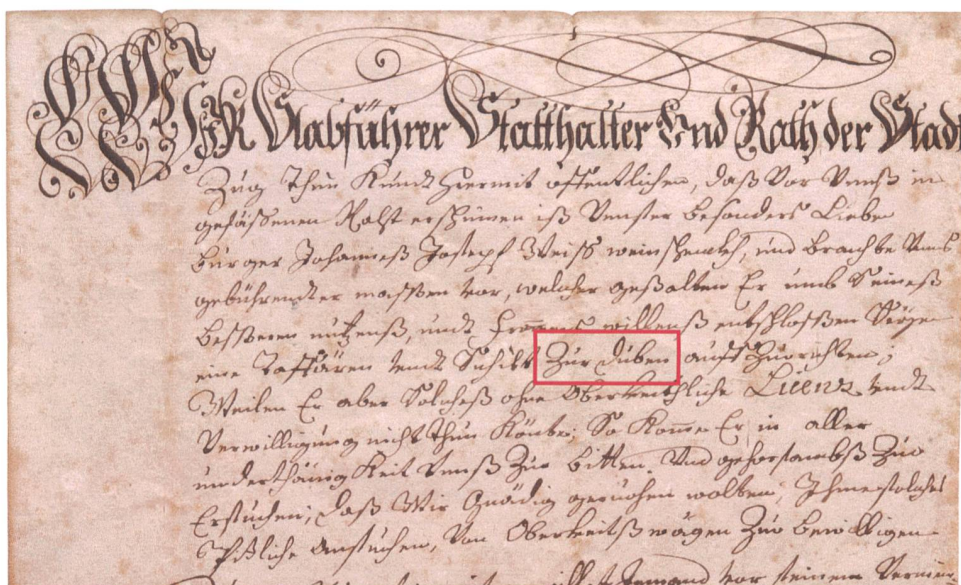 WIR Stabführer Statthalter Und Rath der Stadt
Zug Thun Kundt hiermit offentlichen, daß Vor Unß in
gesässenen Rath erschinen ist Unser besonders Liebe
burger Johanneß Joseph Weiss weinschenckh, und brachte Unß
gebührendter massen vor, welcher gestalten Er umb Seineß
besseren nutzenß, undt frommens willenß entschlossen Seye
eine Taffären undt Schilt Zur duben auffZurichten,
Weilen Er aber Solcheß ohne Oberkeithliche Licenz undt
Verwilligung nicht thun Könte; So Komme Er in aller
underthänigkeit Unnß Zue bitten Und gehorsambß Zuo
Ersuchen; daß Wir Gnädig geruohen wolten, Ihme solches
ansuchen, Von Oberkeitß wägen Zuo bewilligen